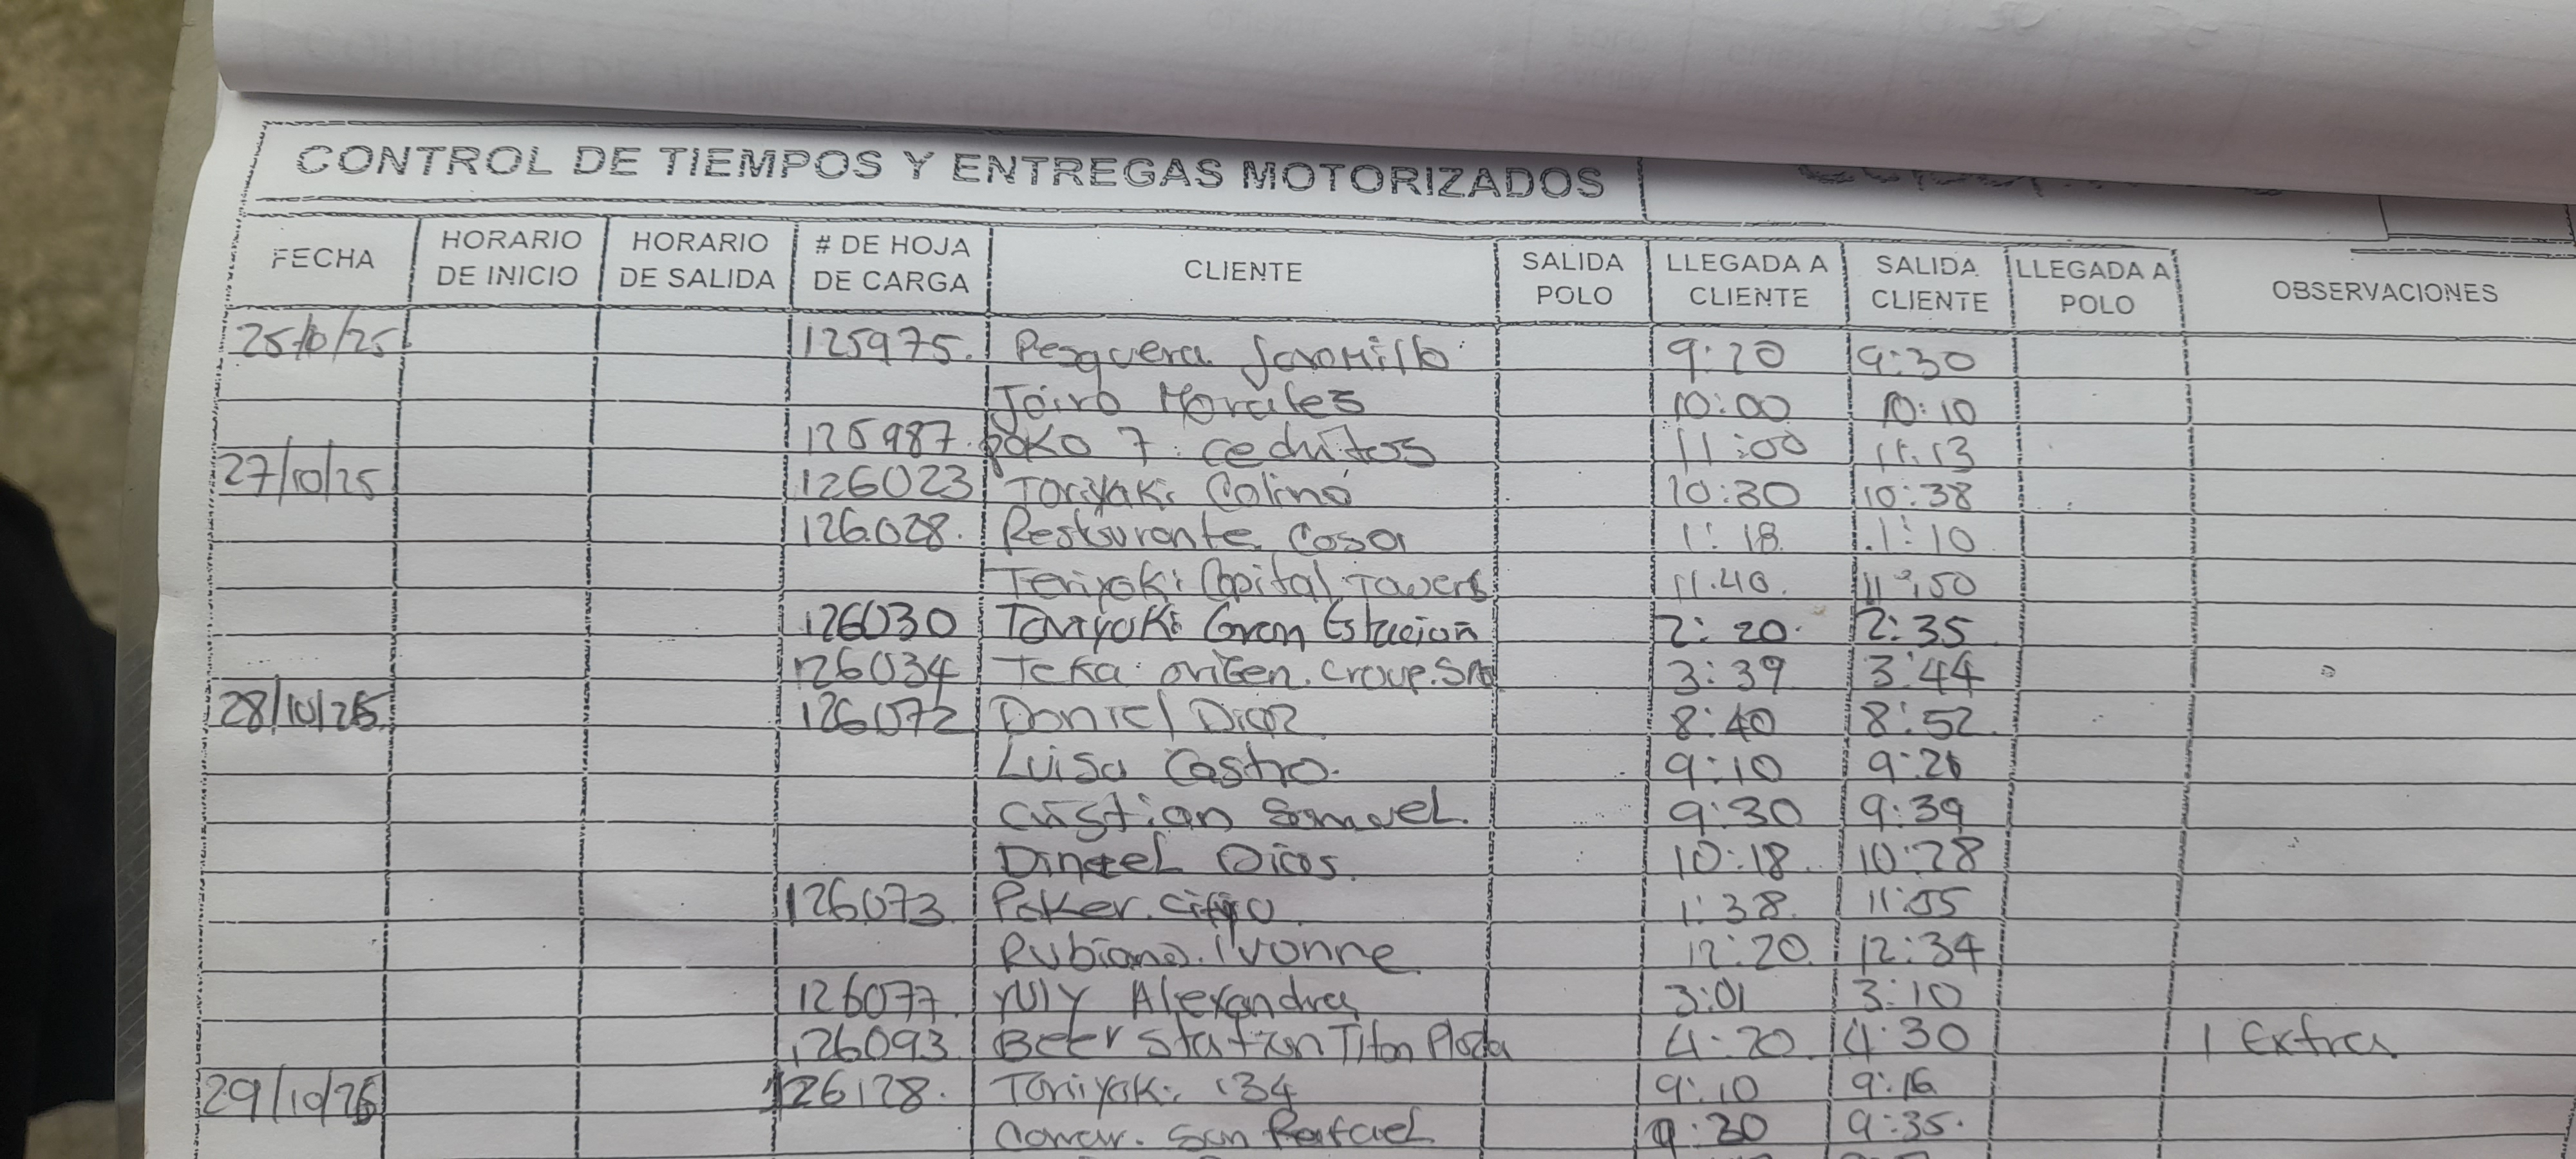 CONTROL DE TIEMPOS Y ENTREGAS MOTORIZADOS
FECHA HORARIO DE INICIO HORARIO DE SALIDA # DE HOJA DE CARGA CLIENTE SALIDA POLO LLEGADA A CLIENTE SALIDA CLIENTE LLEGADA A POLO OBSERVACIONES
25/10/25 125975. Pesquera Jaramillo 9:20 9:30
Jairo Morales 10:00 10:10
125987. poko 7. cedritos 11:00 11:13
27/10/25 126023 Toriyaki Colina 10:30 10:38
126028. Restaurante Casa 1:18 1:10
Teriyaki Capital Towers 11.40. 11:50
126030 Toriyaki Gran Estacion 2:20. 2:35
126034 Teka origen. Group. 3:39 3:44
28/10/25 126072 Daniel Diaz 8:40 8:52
Luisa Castro. 9:10 9:26
Cristian Samuel. 9:30 9:39
10:18 10:28
126073. Poker. 1:38 11:55
Rubiano. Ivonne 12:20 12:34
126077. Yuly Alexandra 3:01 3:10
126093 Beer Station Titan Plaza 4:20 4:30 1 Extra
29/10/25 126128. Toriyaki 134 9:10 9:16
San Rafael 9:20 9:35.